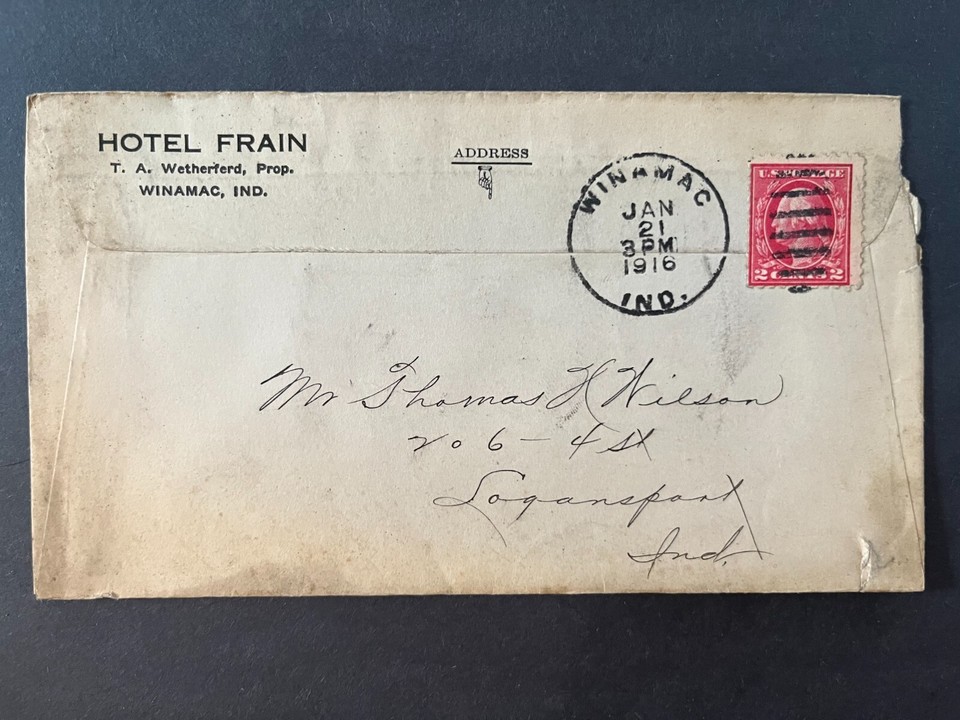 HOTEL FRAIN
T. A. Wetherferd, Prop.
WINAMAC, IND.
ADDRESS
WINAMAC
JAN
21
3 PM
1916
IND.
U.S. POSTAGE
2 CENTS 2
Mr Thomas H Wilson
no 6 - 4 st
Logansport
Ind.